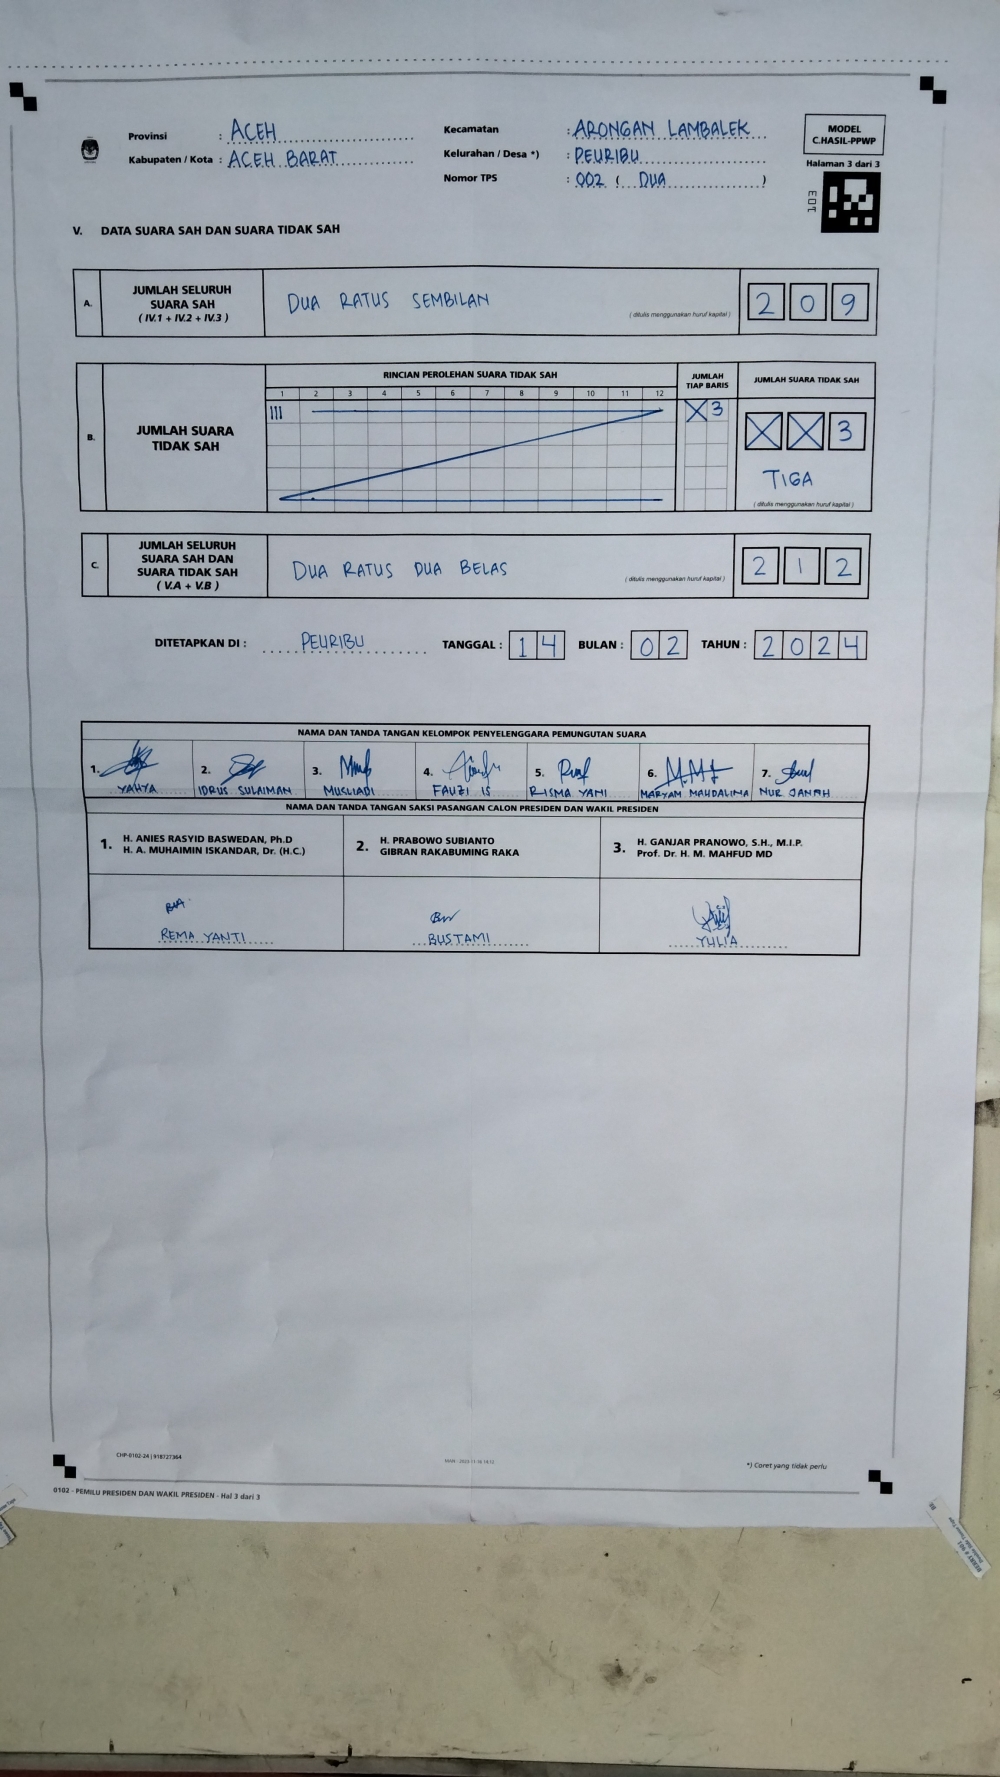 Provinsi : ACEH
Kabupaten / Kota : ACEH BARAT
Kecamatan : ARONGAN LAMBALEK
Kelurahan / Desa *) : PEURIBU
Nomor TPS : 002 ( DUA )
MODEL
C.HASIL-PPWP
Halaman 3 dari 3
103
V. DATA SUARA SAH DAN SUARA TIDAK SAH
A. JUMLAH SELURUH
SUARA SAH
( IV.1 + IV.2 + IV.3 )
DUA RATUS SEMBILAN
( ditulis menggunakan huruf kapital )
2 0 9
B. JUMLAH SUARA
TIDAK SAH
RINCIAN PEROLEHAN SUARA TIDAK SAH
1 2 3 4 5 6 7 8 9 10 11 12
III
JUMLAH
TIAP BARIS
X 3
JUMLAH SUARA TIDAK SAH
X X 3
TIGA
( ditulis menggunakan huruf kapital )
C. JUMLAH SELURUH
SUARA SAH DAN
SUARA TIDAK SAH
( V.A + V.B )
DUA RATUS DUA BELAS
( ditulis menggunakan huruf kapital )
2 1 2
DITETAPKAN DI : PEURIBU TANGGAL : 14 BULAN : 02 TAHUN : 2024
NAMA DAN TANDA TANGAN KELOMPOK PENYELENGGARA PEMUNGUTAN SUARA
1. YAHYA
2. IDRUS SULAIMAN
3. MUSLIADI
4. FAUZI IS
5. RISMA YANI
6. MARYAM MAHDALINA
7. NUR JANAH
NAMA DAN TANDA TANGAN SAKSI PASANGAN CALON PRESIDEN DAN WAKIL PRESIDEN
1. H. ANIES RASYID BASWEDAN, Ph.D
H. A. MUHAIMIN ISKANDAR, Dr. (H.C.)
2. H. PRABOWO SUBIANTO
GIBRAN RAKABUMING RAKA
3. H. GANJAR PRANOWO, S.H., M.I.P.
Prof. Dr. H. M. MAHFUD MD
REMA YANTI
BUSTAMI
YULIA
CHP-0102-24 | 918727364
*) Coret yang tidak perlu
0102 - PEMILU PRESIDEN DAN WAKIL PRESIDEN - Hal 3 dari 3